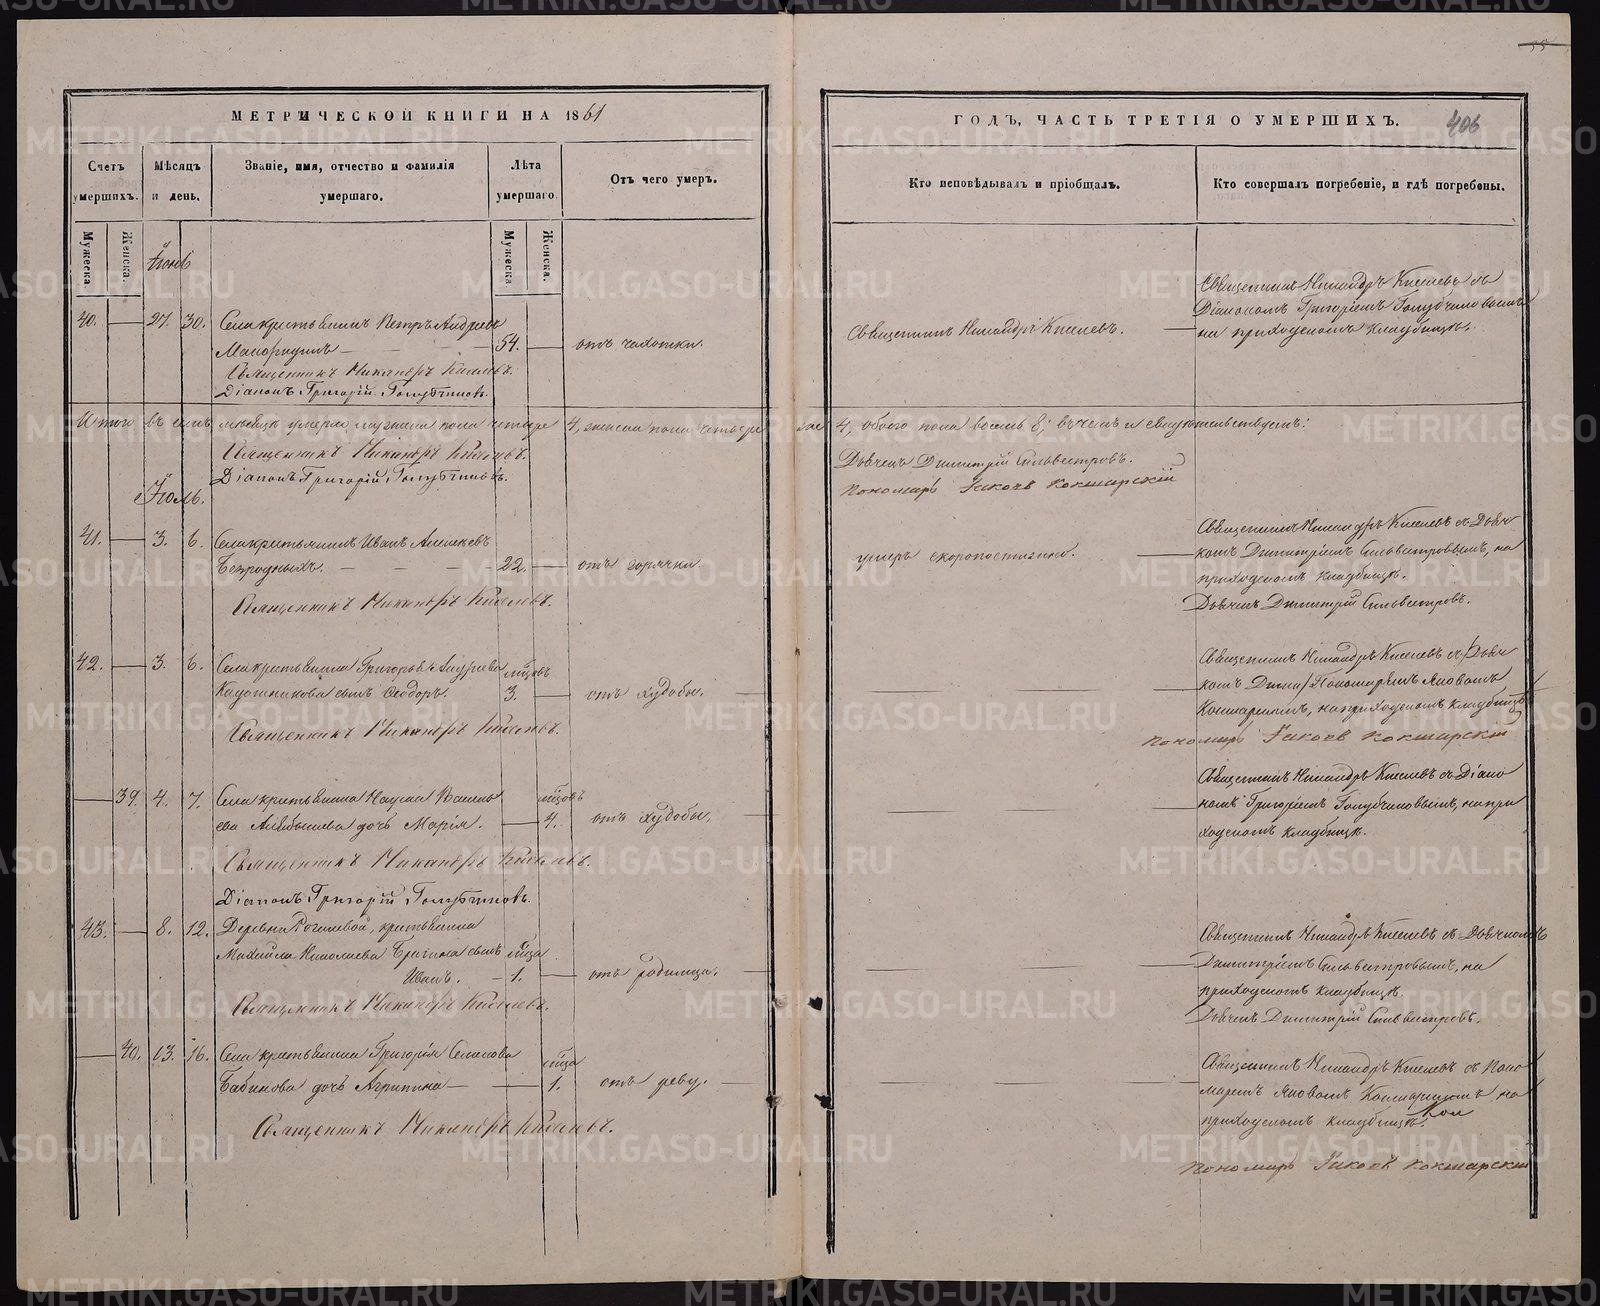 55
МЕТРИЧЕСКОЙ КНИГИ НА 1861
ГОДЪ, ЧАСТЬ ТРЕТІЯ О УМЕРШИХЪ.
406
Счетъ умершихъ.
Мѣсяцъ и день.
Званіе, имя, отчество и фамилія умершаго.
Лѣта умершаго.
Отъ чего умеръ.
Кто исповѣдывалъ и пріобщалъ.
Кто совершалъ погребеніе, и гдѣ погребены.
Мужеска.
Женска.
Мужеска.
Женска.
Іюнь
40. 27. 30. Села крестьянинъ Петръ Андреевъ
54. отъ чахотки.
Священникъ Никандръ Киселевъ.
Діаконъ Григорій Голубчиковъ.
Священникъ Никандръ Киселевъ.
Священникъ Никандръ Киселевъ съ
Діакономъ Григоріемъ Голубчиковымъ
на приходскомъ кладбищѣ.
Итого въ семъ мѣсяцѣ умерло мужеска пола четыре 4, женска пола четыре 4, обоего пола восемь 8; въ чемъ и свидѣтельствуемъ:
Священникъ Никандръ Киселевъ.
Діаконъ Григорій Голубчиковъ.
Дьячекъ Димитрій Сильвестровъ.
Пономарь Іаковъ Кокшарскій
Іюль.
41. 3. 6. Села крестьянинъ Иванъ Алексѣевъ
Безродныхъ. 22. отъ горячки.
Священникъ Никандръ Киселевъ.
умеръ скоропостижно.
Священникъ Никандръ Киселевъ съ Дьяч
комъ Димитріемъ Сильвестровымъ, на
приходскомъ кладбищѣ.
Дьячекъ Димитрій Сильвестровъ.
42. 3. 6. Села крестьянина Григорья Андреева
сынъ Ѳеодоръ. мѣсцовъ 3. отъ худобы.
Священникъ Никандръ Киселевъ.
Священникъ Никандръ Киселевъ съ
Пономаремъ Яковомъ
Кокшарскимъ, на приходскомъ кладбищѣ
Пономарь Іаковъ Кокшарскій
39. 4. 7. Села крестьянина Наума Василь
ева дочь Марія. мѣсцовъ 4. отъ худобы.
Священникъ Никандръ Киселевъ.
Діаконъ Григорій Голубчиковъ.
Священникъ Никандръ Киселевъ съ Діако
номъ Григоріемъ Голубчиковымъ, на при
ходскомъ кладбищѣ.
43. 8. 12. Деревни крестьянина
Михаила Николаева сынъ
Иванъ. мѣсца 1. отъ родимца.
Священникъ Никандръ Киселевъ.
Священникъ Никандръ Киселевъ съ Дьячкомъ
Димитріемъ Сильвестровымъ, на
приходскомъ кладбищѣ.
Дьячекъ Димитрій Сильвестровъ.
40. 13. 16. Села крестьянина Григорія Семенова
Бабикова дочь Агрипина мѣсца 1. отъ реву.
Священникъ Никандръ Киселевъ.
Священникъ Никандръ Киселевъ съ Поно
маремъ Яковомъ Кокшарскимъ на
приходскомъ кладбищѣ.
Пономарь Іаковъ Кокшарскій
METRIKI.GASO-URAL.RU